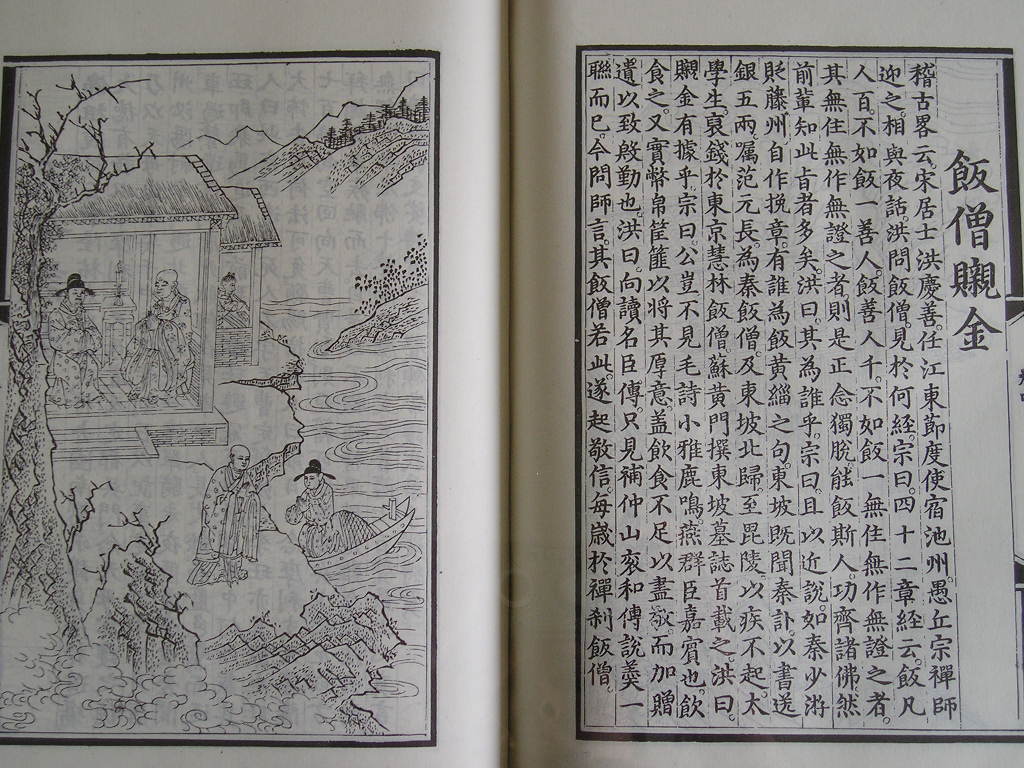 飯僧䞋金
稽古畧云。宋居士洪慶善。任江東節度使宿池州。愚丘宗禪師
迎之。相與夜話。洪問飯僧。見於何經。宗曰。四十二章經云。飯凡
人百。不如飯一善人。飯善人千。不如飯一無住無作無證之者。
其無住無作無證之者則是正念獨脫能飯斯人功齊諸佛。然
前輩知此㫖者多矣。洪曰。其為誰乎。宗曰。且以近說。如秦少游
貶藤州。自作挽章。有誰為飯黃緇之句。東坡既聞秦訃。以書送
銀五兩。嘱范元長。為秦飯僧。及東坡北歸至毘陵。以疾不起。太
學生裒錢於東京慧林飯僧。蘇黃門撰東坡墓誌首載之。洪曰。
䞋金有據乎。宗曰。公豈不見毛詩小雅鹿鳴。燕群臣嘉賓也。飲
食之。又實幣帛筐篚以將其厚意。蓋飲食不足以盡敬而加贈
遺以致慇勤也。洪曰。向讀名臣傳。只見補仲山袞和傅說羹一
聯而已。今問師言。其飯僧若此。遂起敬信。每歲於禪刹飯僧。